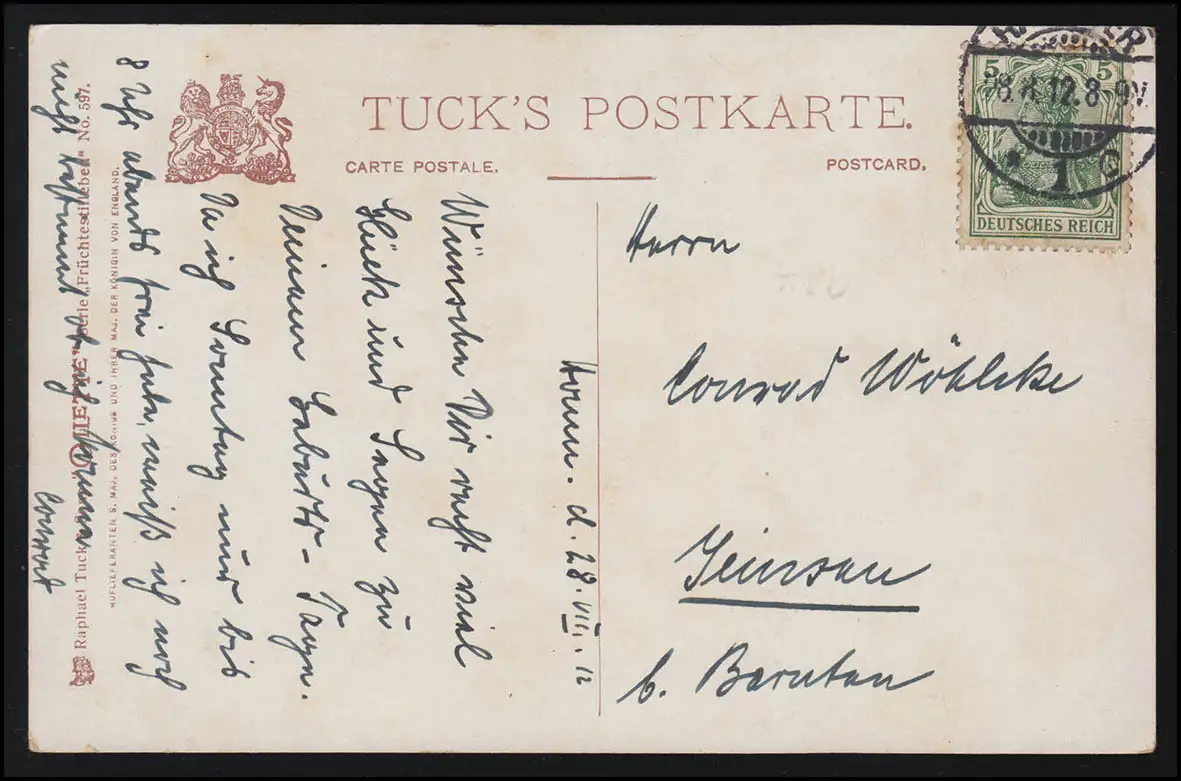 TUCK'S POSTKARTE.
CARTE POSTALE.
POSTCARD.
5 5
12.8-9V
* 1 C
DEUTSCHES REICH
Herrn
Conrad Wöhlcke
Jeinsen
b. Barnten
Hann. d. 28.VII.12
Wünsche Dir recht viel
Glück und Segen zu
Deinem Geburts-Tage.
Da ich Sonntag nur bis
8 Uhr abends frei habe, weiß ich noch
nicht bestimmt ob ich komme
Conrad
Raphael Tuck "OILETTE" Serie „Früchtestilleben" No. 597.
HOFLIEFERANTEN S. MAJ. DES KÖNIGS UND IHRER MAJ. DER KÖNIGIN VON ENGLAND.